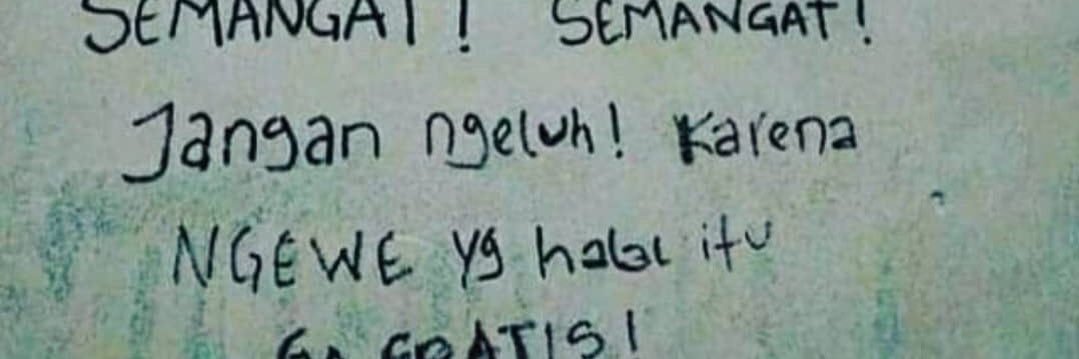 SEMANGAT! SEMANGAT!
Jangan ngeluh! Karena
NGEWE yg halal itu
Ga GRATIS!